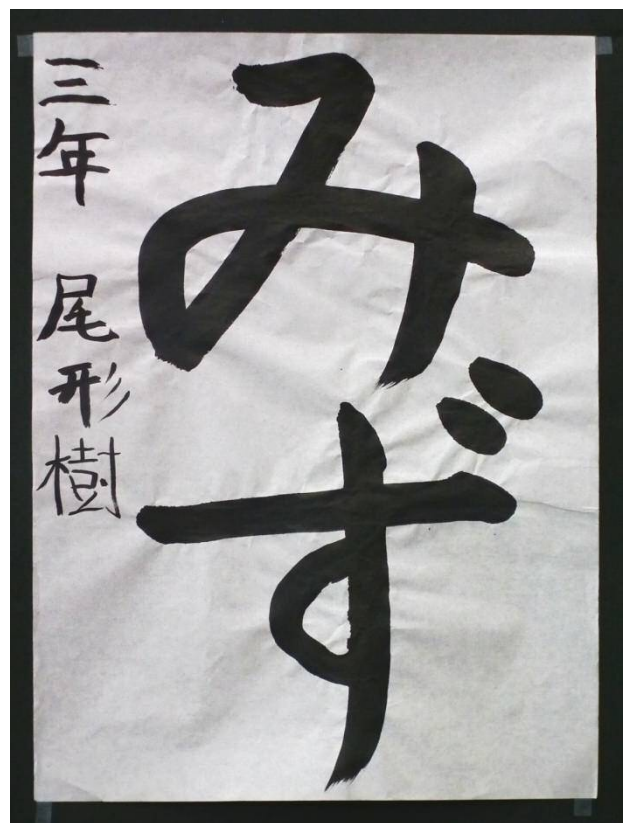 みず
三年 尾形樹